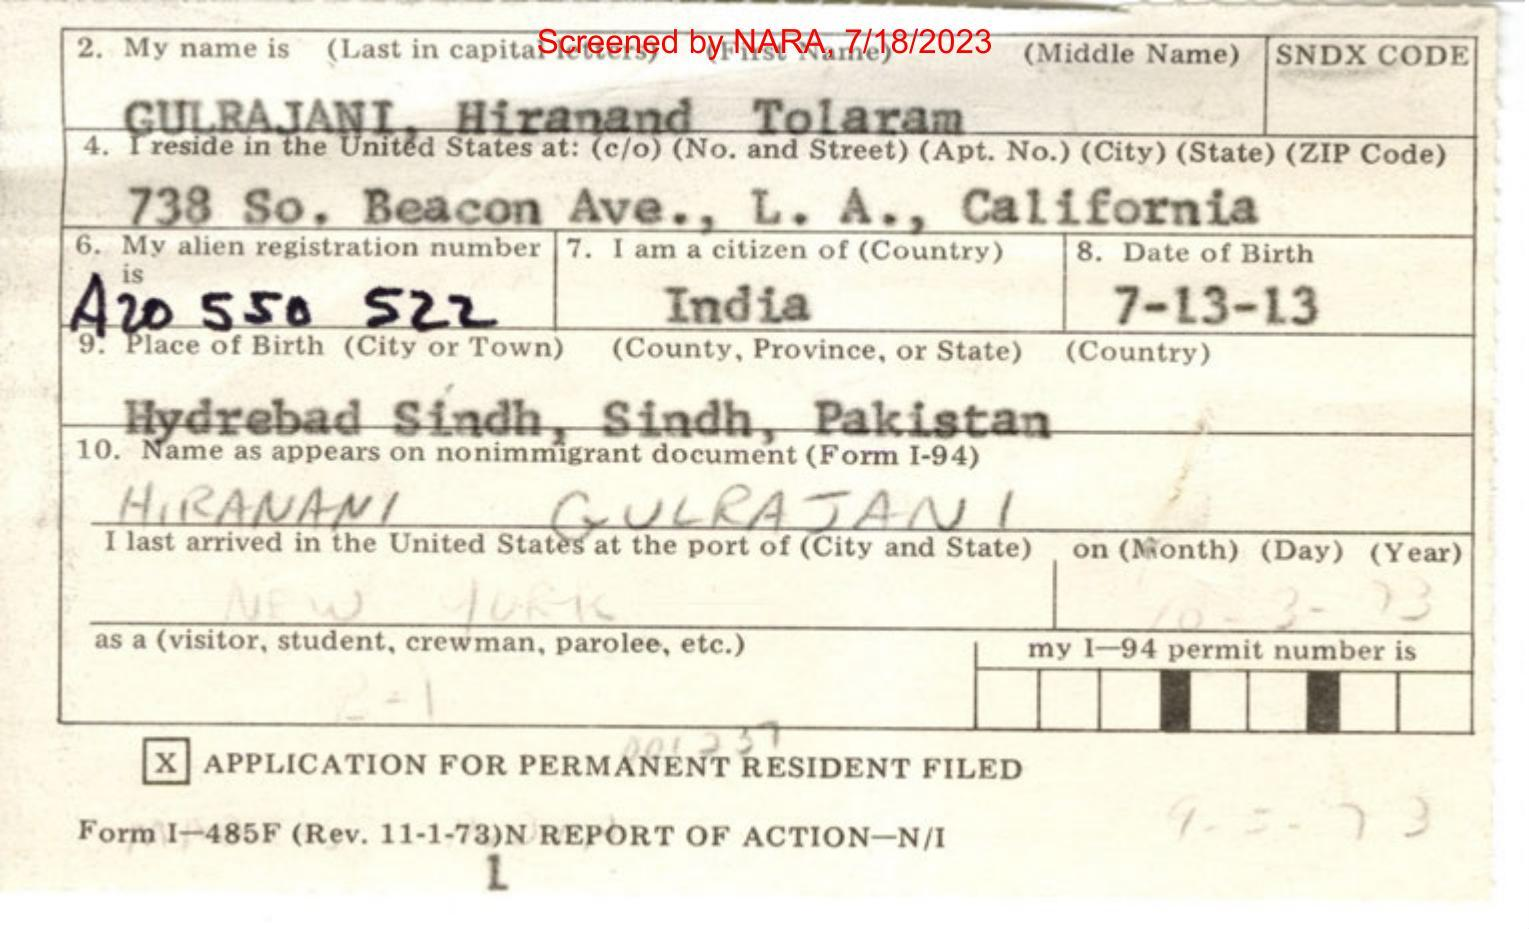 Screened by NARA, 7/18/2023
2. My name is (Last in capital letters) (First Name) (Middle Name) SNDX CODE
GULRAJANI, Hiranand Tolaram
4. I reside in the United States at: (c/o) (No. and Street) (Apt. No.) (City) (State) (ZIP Code)
738 So. Beacon Ave., L. A., California
6. My alien registration number 7. I am a citizen of (Country) 8. Date of Birth
is
A20 550 522 India 7-13-13
9. Place of Birth (City or Town) (County, Province, or State) (Country)
Hydrebad Sindh, Sindh, Pakistan
10. Name as appears on nonimmigrant document (Form I-94)
HIRANANI GULRAJANI
I last arrived in the United States at the port of (City and State) on (Month) (Day) (Year)
NEW YORK 10-3-73
as a (visitor, student, crewman, parolee, etc.) my I—94 permit number is
X APPLICATION FOR PERMANENT RESIDENT FILED
Form I—485F (Rev. 11-1-73)N REPORT OF ACTION—N/I
1